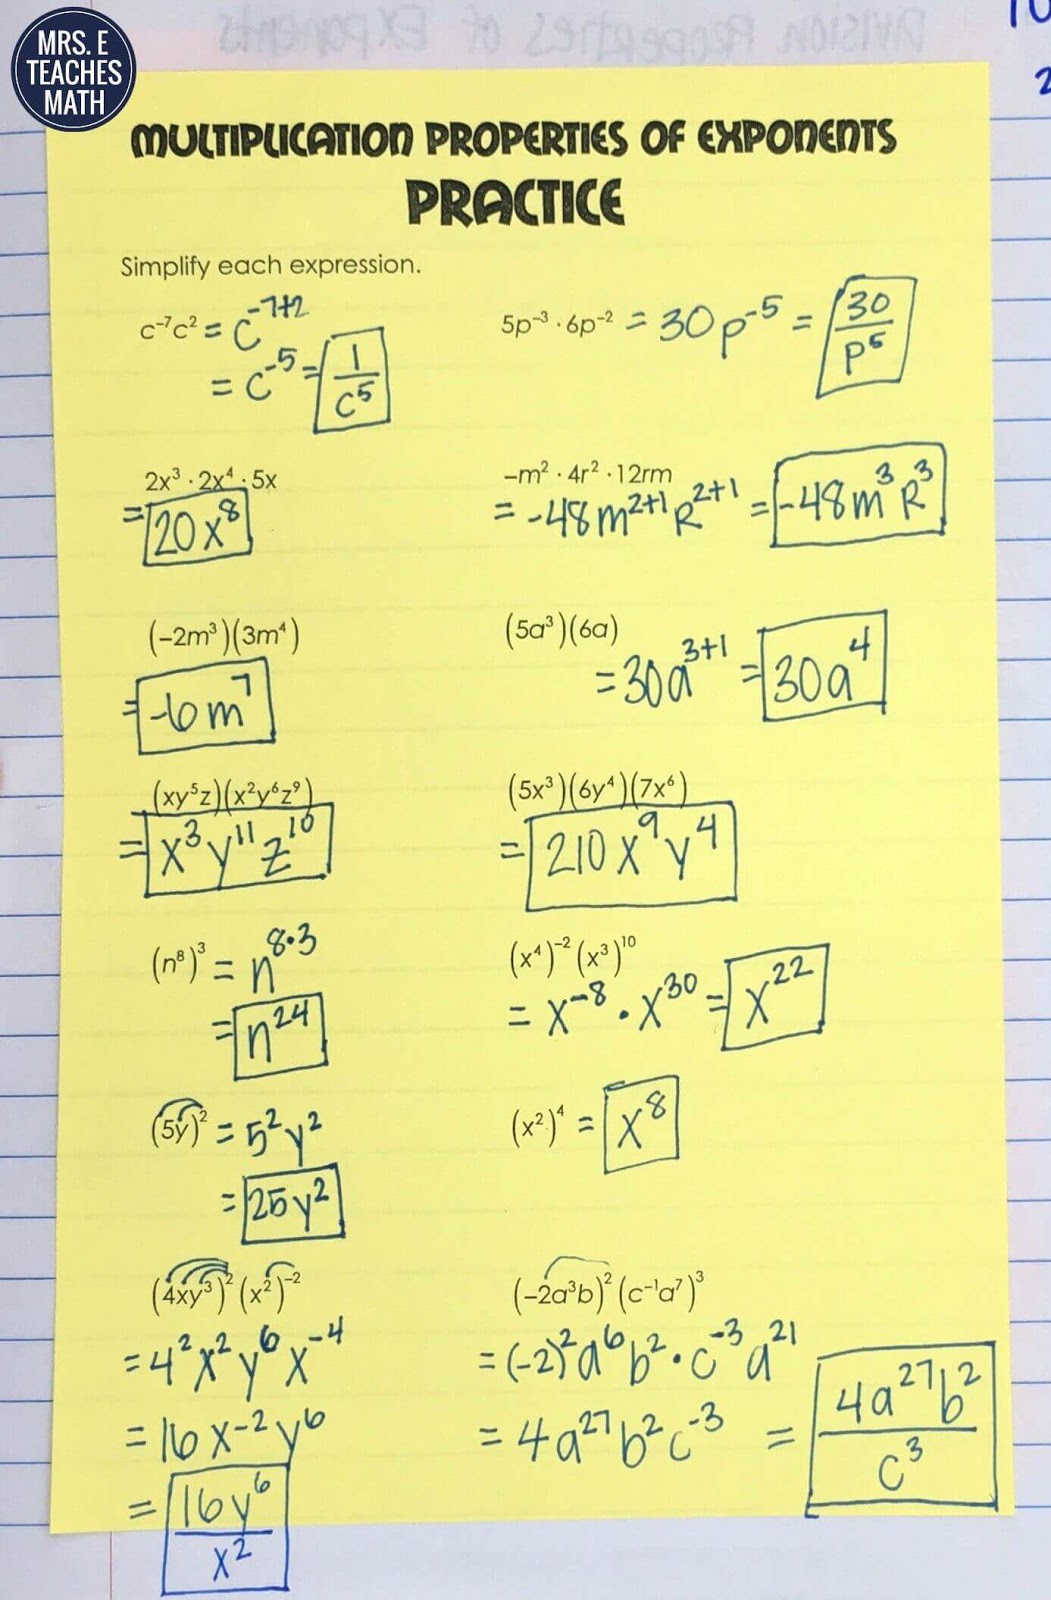 MRS. E
TEACHES
MATH
Division Properties of Exponents
10
2
MULTIPLICATION PROPERTIES OF EXPONENTS
PRACTICE
Simplify each expression.
c⁻⁷c² = c⁻⁷⁺²
= c⁻⁵ = 1/c⁵
5p⁻³ · 6p⁻² = 30p⁻⁵ = 30/p⁵
2x³ · 2x⁴ · 5x
= 20x⁸
-m² · 4r² · 12rm
= -48m²⁺¹R²⁺¹ = -48m³R³
(-2m³)(3m⁴)
= -6m⁷
(5a³)(6a)
= 30a³⁺¹ = 30a⁴
(xy⁵z)(x²y⁶z⁹)
= x³y¹¹z¹⁰
(5x³)(6y⁴)(7x⁶)
= 210x⁹y⁴
(n⁸)³ = n⁸·³
= n²⁴
(x⁴)⁻²(x³)¹⁰
= x⁻⁸ · x³⁰ = x²²
(5y)² = 5²y²
= 25y²
(x²)⁴ = x⁸
(4xy³)²(x²)⁻²
= 4²x²y⁶x⁻⁴
= 16x⁻²y⁶
= 16y⁶/x²
(-2a³b)²(c⁻¹a⁷)³
= (-2)²a⁶b² · c⁻³a²¹
= 4a²⁷b²c⁻³ = 4a²⁷b²/c³